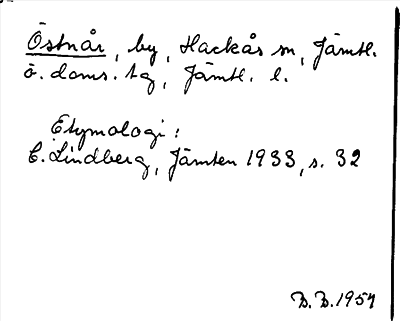 Östnår, by, Hackås sn, Jämtl.
ö. doms. tg, Jämtl. l.
Etymologi:
C. Lindberg, Jämten 1933, s. 32
B. B. 1957